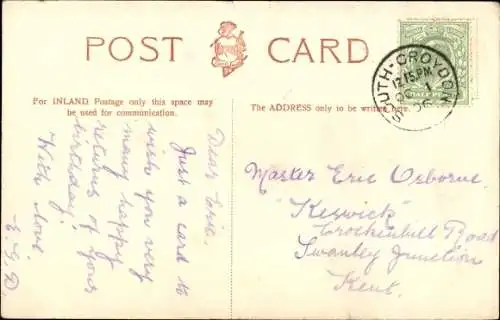 POST CARD
For INLAND Postage only this space may
be used for communication.
The ADDRESS only to be written here.
SOUTH-CROYDON
12.15PM
06
Dear Eric.
Just a card to
wish you very
many happy
returns of yours
birthday!
With love.
E.G.D.
Master Eric Osborne.
"Keswick"
Crockenhill Road
Swanley Junction
Kent.